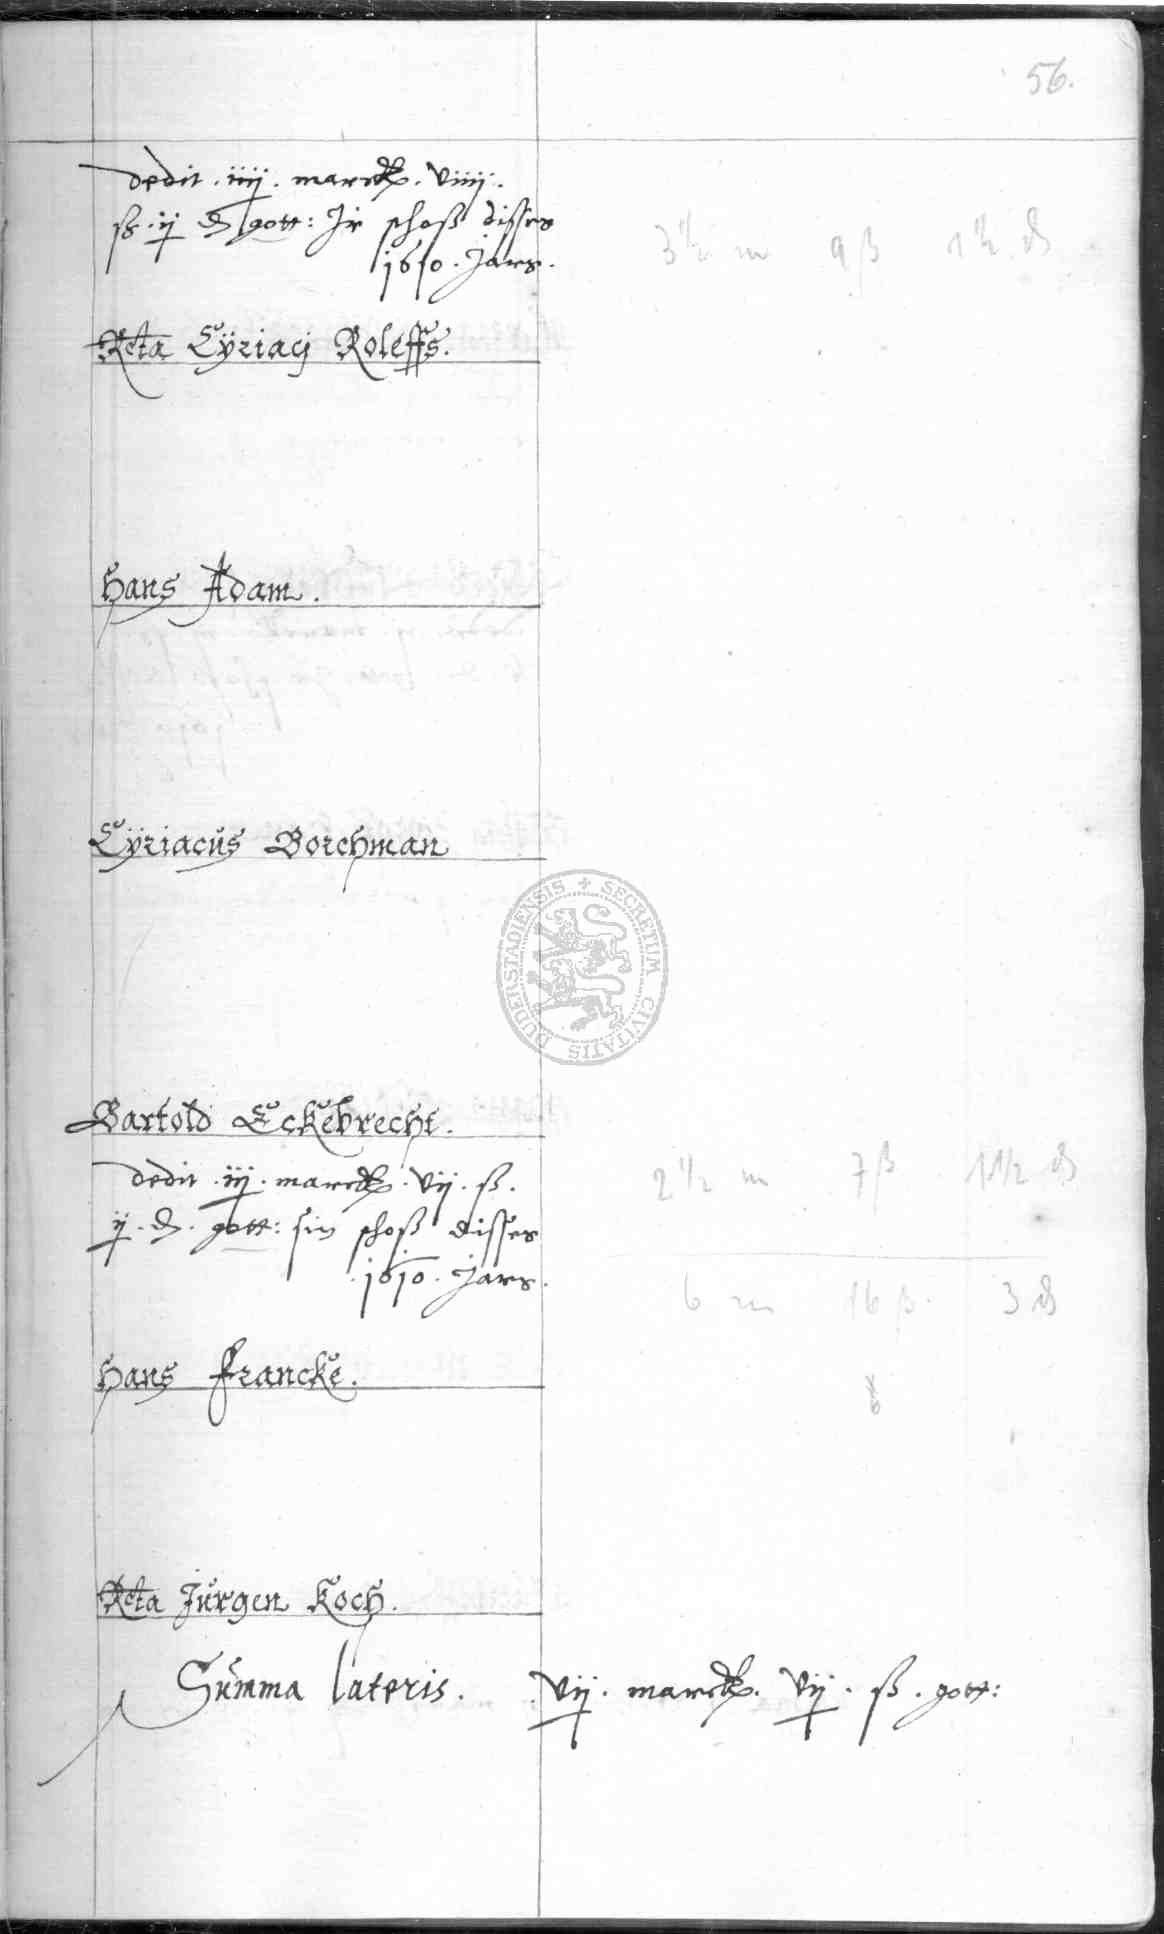 56.
dedit . iiij . marck . viiij .
ß . ij ₰ gott: Ir schoß disses
1610 . Jars .
3 1/2 m 9 ß 1 1/2 ₰
Rcta Cÿriacj Roleffs.
Hans Adam .
Cÿriacus Borchman
DUDERSTADIENSIS + SECRETUM CIVITATIS
Bartold Eckebrecht .
dedit . iij . marck . vij . ß .
ij . ₰ . gott: sin schoß disses
. 1610 . Jars .
2 1/2 m 7 ß 1 1/2 ₰
6 m 16 ß . 3 ₰
Hans Francke .
Rcta Jurgen Koch .
Summa lateris . . vij . marck . vij . ß . gott: